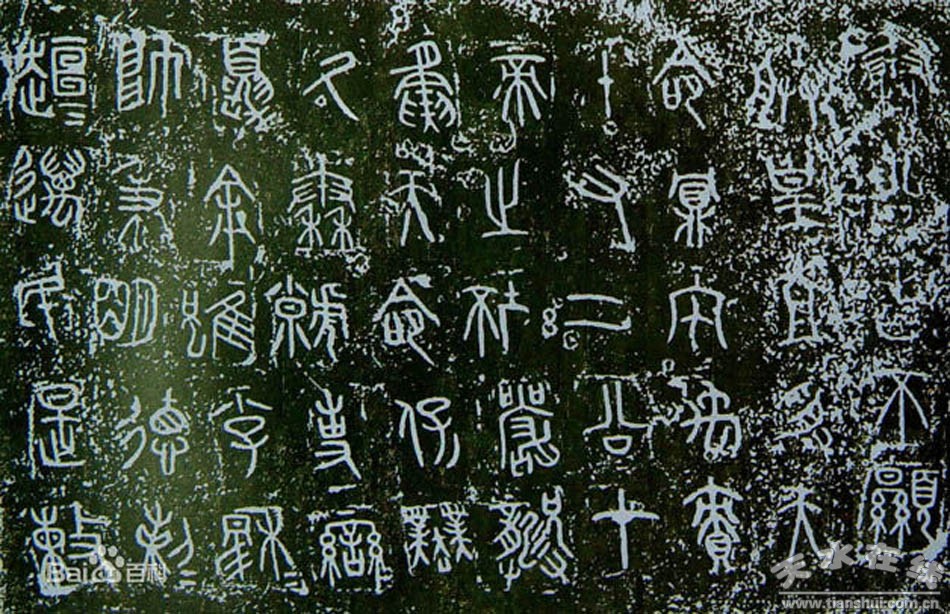 秦公曰不顯
朕皇且受天
命鼏宅禹賣
十又二公才
帝之坏嚴龏
夤天命保業
厥秦虩事蠻
夏余雖小子穆〓
帥秉明德剌〓
趄〓邁民是敕
Bai百科
天水在线
www.tianshui.com.cn